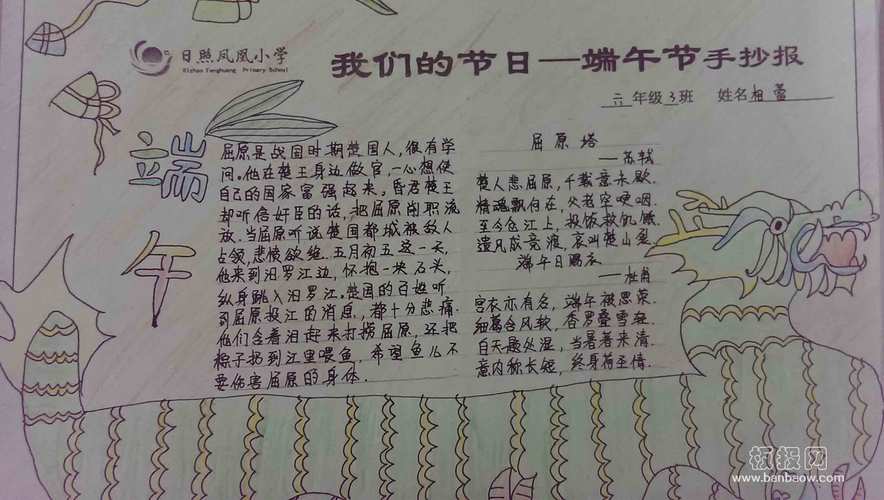 日照凤凰小学
Rizhao Fenghuang Primary School
我们的节日—端午节手抄报
六年级3班 姓名相蕾
端午
屈原是战国时期楚国人,很有学
问。他在楚王身边做官,一心想使
自己的国家富强起来。昏君楚王
却听信奸臣的话,把屈原削职流
放。当屈原听说楚国都城被敌人
占领,悲愤欲绝。五月初五这一天,
他来到汨罗江边,怀抱一块石头,
纵身跳入汨罗江。楚国的百姓听
到屈原投江的消息,都十分悲痛。
他们含着泪赶来打捞屈原,还把
粽子扔到江里喂鱼,希望鱼儿不
要伤害屈原的身体.
屈原塔
—苏轼
楚人悲屈原,千载意未歇.
精魂飘何在,父老空哽咽.
至今仓江上,投饭救饥渴
遗风成竞渡,哀叫楚山裂.
端午日赐衣
—杜甫
宫衣亦有名,端午被恩荣.
细葛含风软,香罗叠雪轻.
自天题处湿,当暑著来清.
意内称长短,终身荷圣情.
板报网
www.banbaow.com